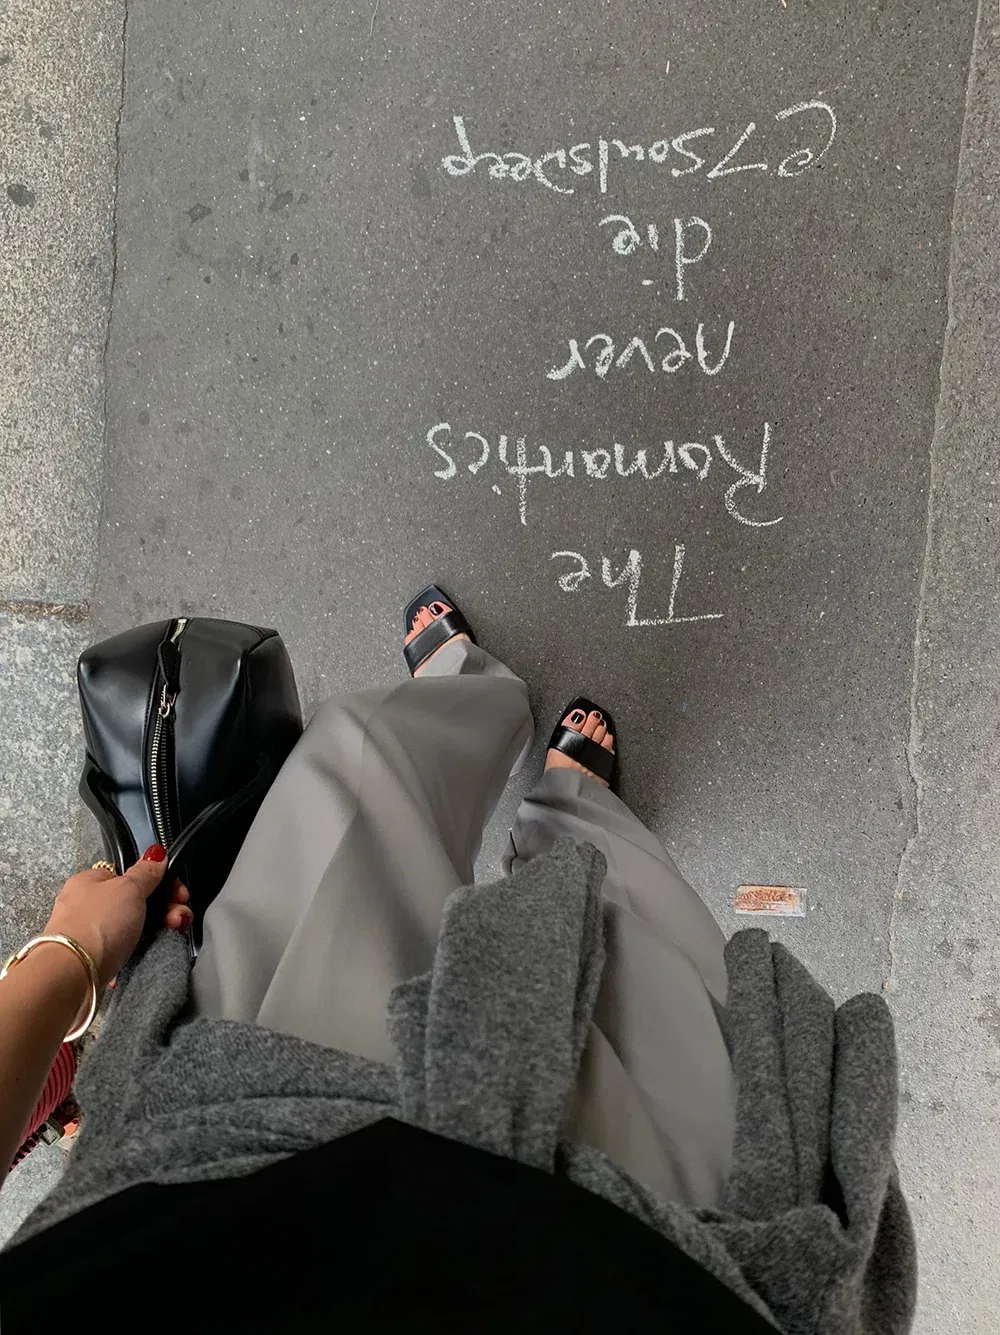 The
Romantics
never
die
@7soulsdeep